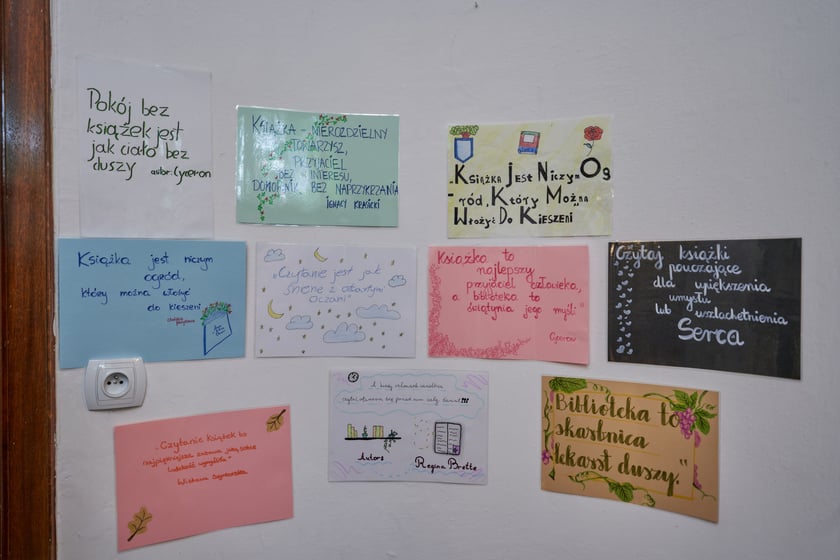 Pokój bez
książek jest
jak ciało bez
duszy autor: Cyceron
KSIĄŻKA – NIEROZDZIELNY
TOWARZYSZ,
PRZYJACIEL
BEZ INTERESU,
DOMOWNIK BEZ NAPRZYKRZANIA
IGNACY KRASICKI
„Książka Jest Niczym Og
-ród, Który Można
Włożyć Do Kieszeni"
Książka jest niczym
ogród,
który można włożyć
do kieszeni
„Czytanie jest jak
śnienie z otwartymi
oczami"
Książka to
najlepszy
przyjaciel człowieka,
a biblioteka to
świątynia jego myśli."
Cyceron
Czytaj książki
pouczające
dla upiększenia
umysłu
lub uszlachetnienia
Serca
„Czytanie książek to
najpiękniejsza zabawa, jaką sobie
ludzkość wymyśliła"
Wisława Szymborska
czytać otwiera się przed nim cały świat!!!
Autor:
Regina Brett
„Biblioteka to
skarbnica
lekarstw duszy."